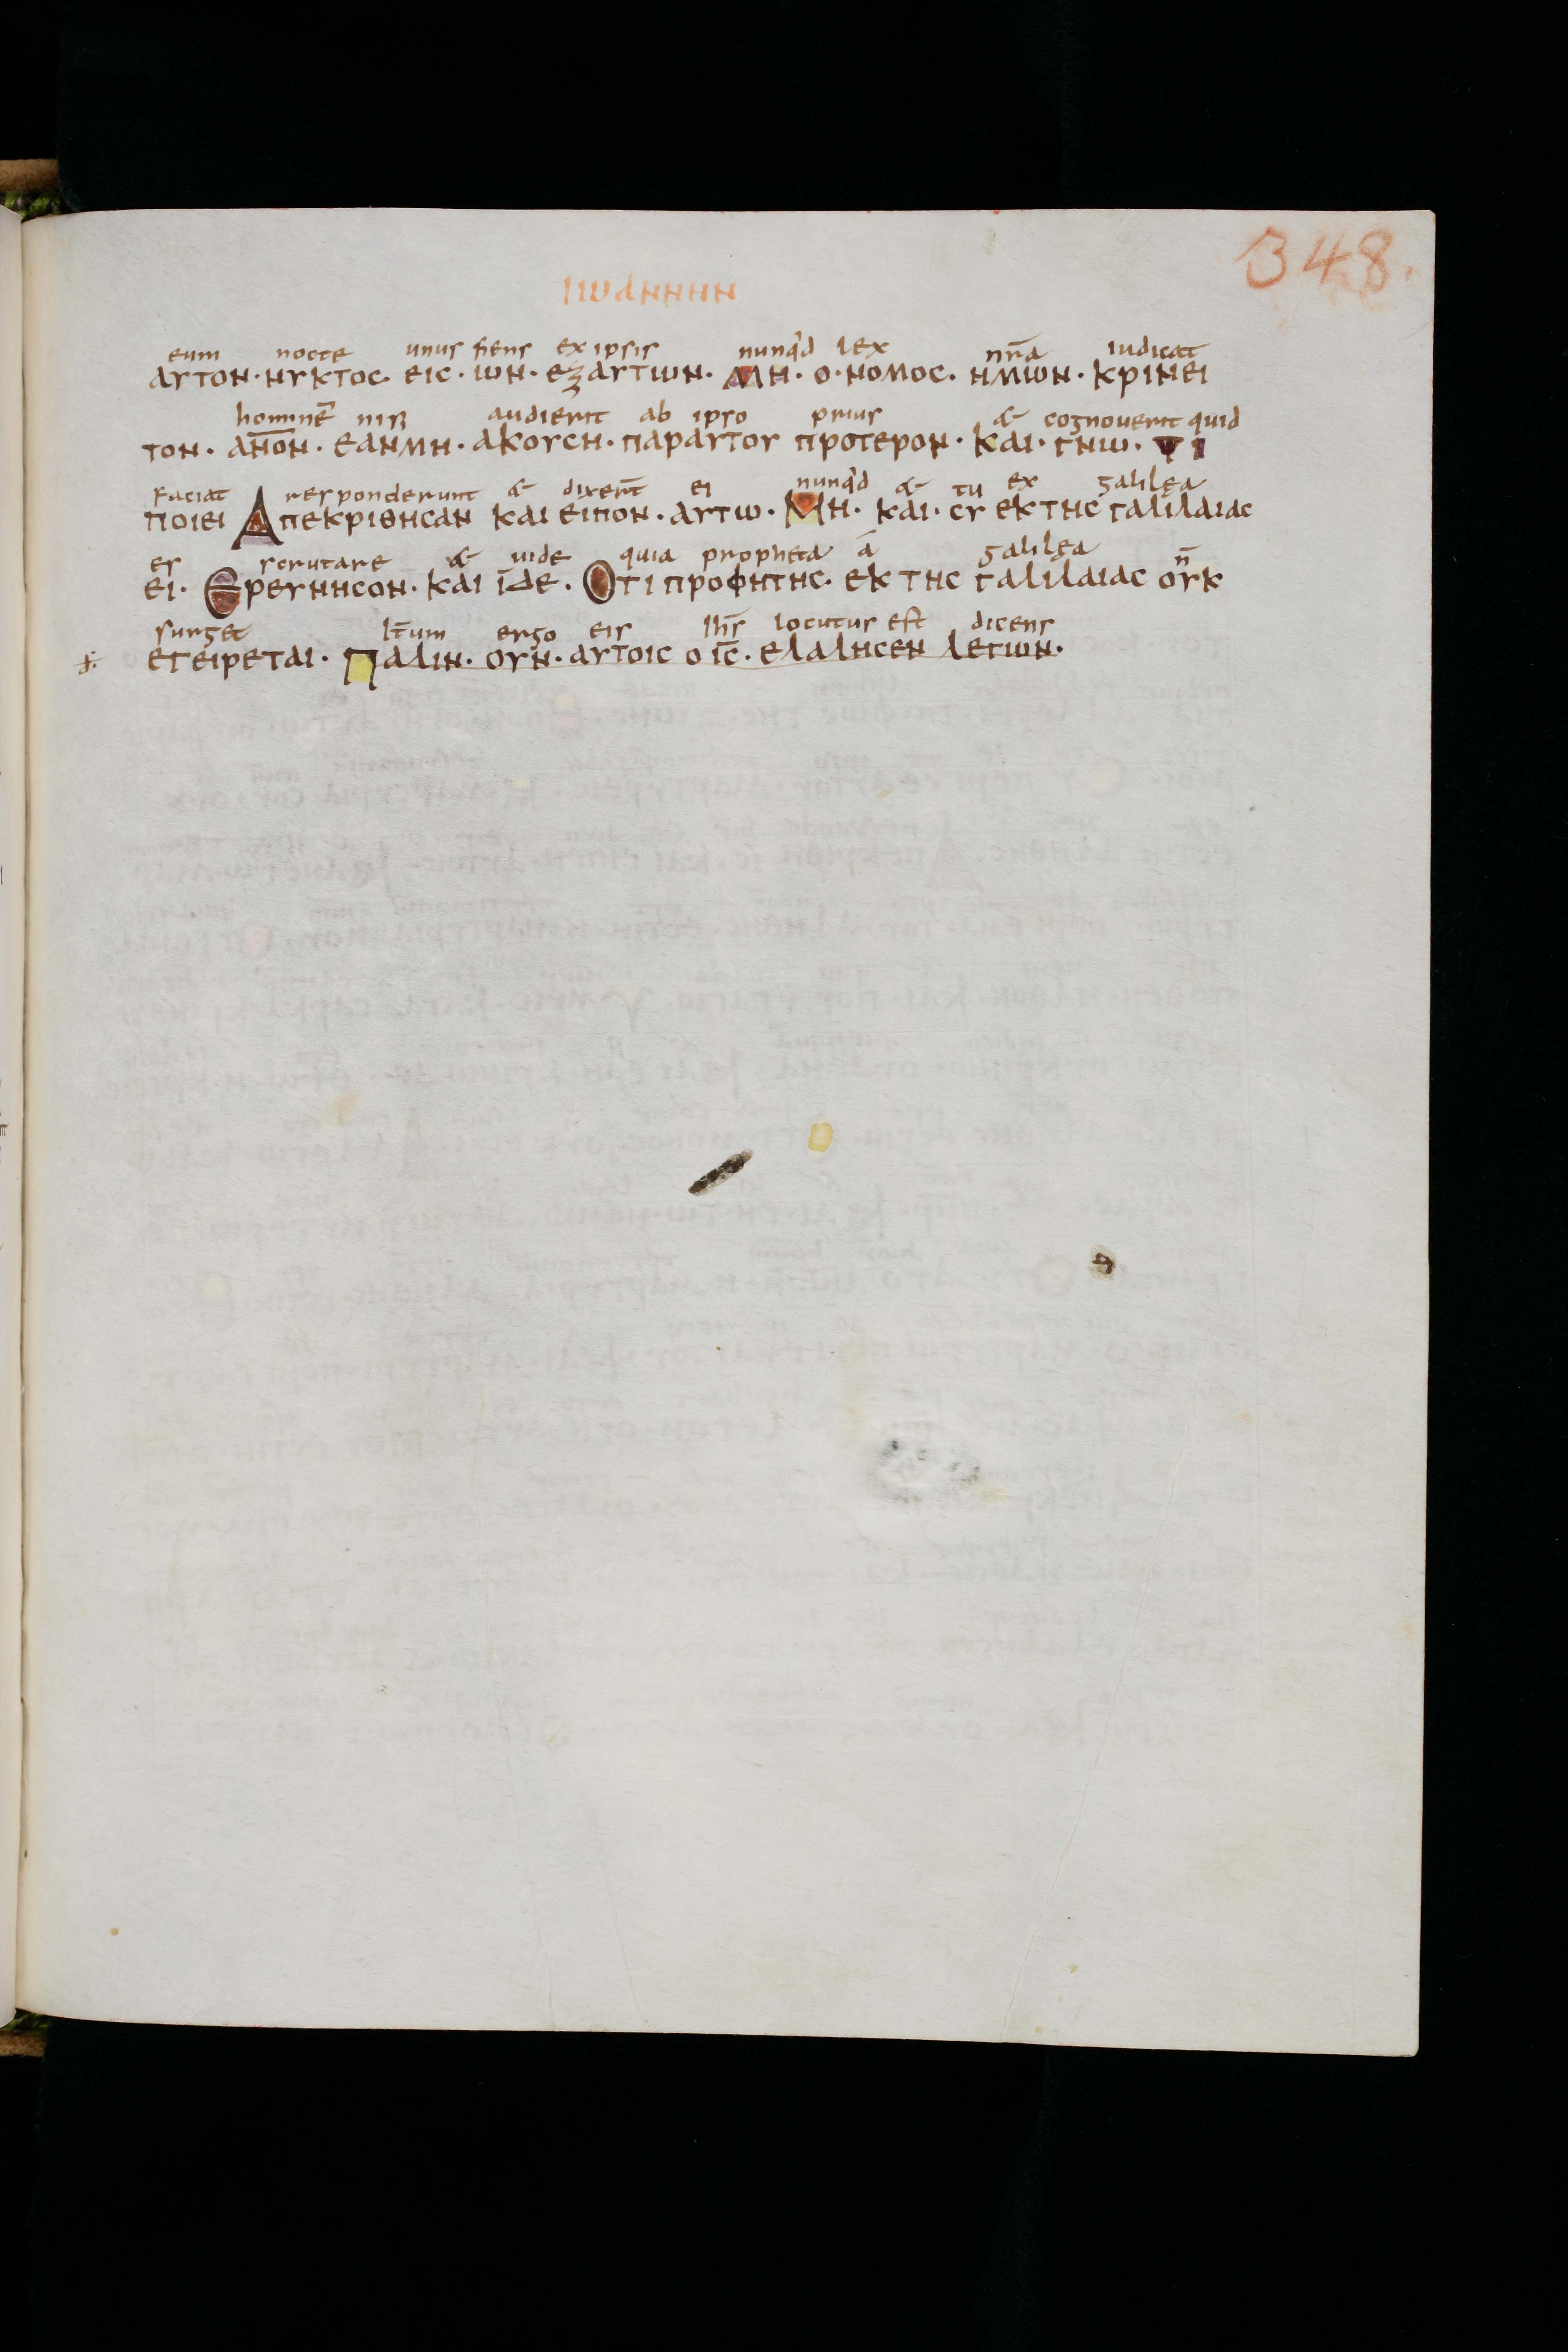 348.
ιωαννην
eum nocte unus fiens ex ipsis nunqd lex nr̄a iudicat
αυτον · νυκτος · εις · ιων · εξ αυτιων · Μη · ο · νομος · ημιων · κρινει
hominē nisi audierit ab ipso prius & cognouerit quid
τον · αν̅ο̅ν · εανμη · ακουση · παραυτου προτερον · και · γνω · τι
faciat responderunt & dixer̄t ei nunqd & tu ex galilęa
ποιει Απεκριθησαν και ειπον · αυτω · Μη · και · συ εκ της γαλιλαιας
es scrutare & uide quia propheta a galilęa n̄
ει · Ερευνησον · και ϊδε · Οτι προφητης · εκ της γαλιλαιας ουκ
surget It̄um ergo eis Ihs̄ locutus est dicens
εγειρεται · Παλιν · ουν · αυτοις ο ις̅ · ελαλησεν λεγιων ·